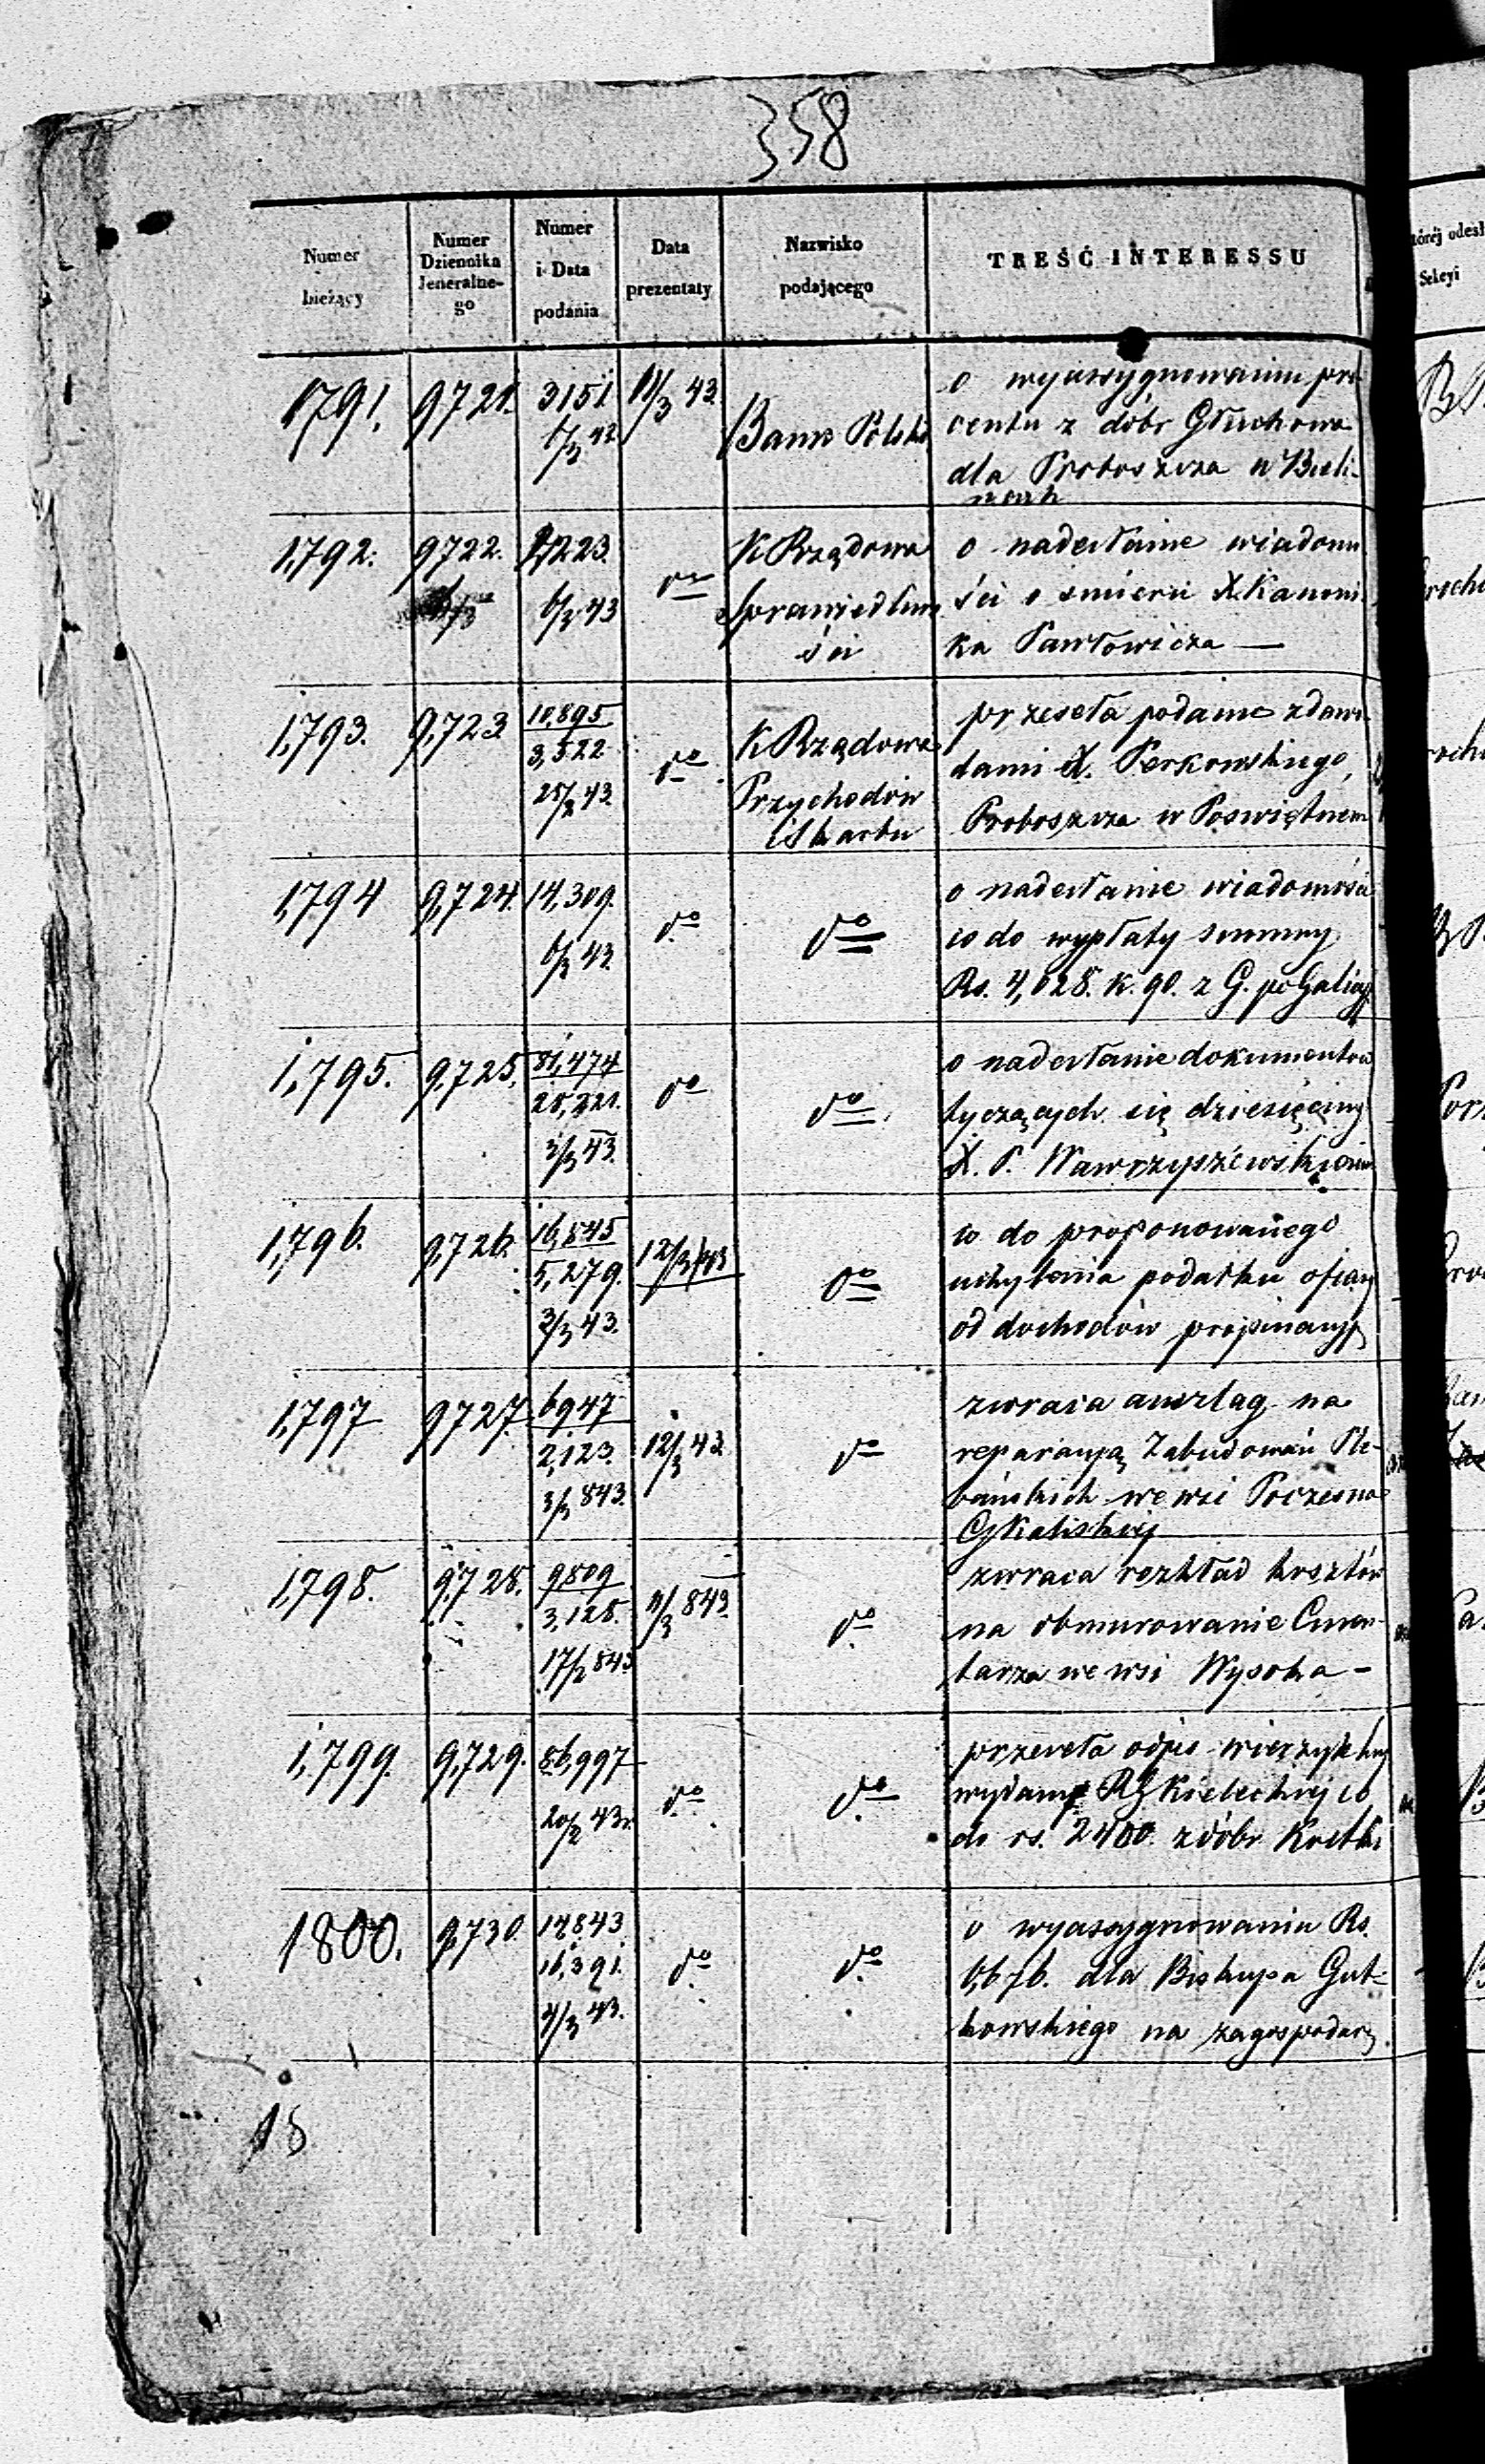 358
Numer bieżący
Numer Dziennika Jeneralnego
Numer i Data podania
Data prezentaty
Nazwisko podającego
TREŚĆ INTERESSU
której odesł
Sekcyi
1791. 9721. 3151 11/3 43.
6/3 43
Bank Polski
o wyassygnowaniu pro-
centu z dóbr Głuchowa
dla Proboszcza w Bieli-
nach
1,792. 9722. 2,223. do
6/3 43
K Rządowa
Sprawiedliwo
ści
o nadesłanie wiadomo
ści o śmierci X. Kanoni
ka Pawłowicza —
1,793. 9,723 10,895
3,522
25/2 43 do
K Rządowa
Przychodów
i Skarbu
przeseła podanie z dowo
dami X. Perkowskiego,
Proboszcza w Poswiętnem
1,794 9,724. 14,309.
6/3 43. do do
o nadesłanie wiadomości
co do wypłaty summy
Rs. 4,028. k. 90. z G. po Galicyj
1,795. 9,725. 81,474
25,221.
3/3 43. do do
o nadesłanie dokumentów
tyczących się dziesięciny
X. P. Wawrzyszewskiemu
1,796. 9,726. 16,845
5,279.
3/3 43. 12/3 43 do
co do proponowanego
uchylenia podatku ofiary
od dochodów propinacyj
1,797 9727. 6947
2,123.
3/3 843. 12/3 43. do
zwraca anszlag na
reparacyą Zabudowań Ple-
bańskich we wsi Poczesna
G Kaliskiej
1,798. 9,728. 9809
3,128.
17/2 843 11/3 843. do
zwraca rozkład kosztów
na obmurowanie Cmen-
tarza we wsi Wysoka —
1,799. 9,729. 86,997
20/2 43r. do do
przeseła odpis
wydany RG Kieleckiej co
do rs. 2400. z dóbr
1800. 9,730. 14843
16,391.
4/3 43. do do
o wyassygnowaniu Rs.
dla Biskupa Gut-
kowskiego na zagospodar.
18